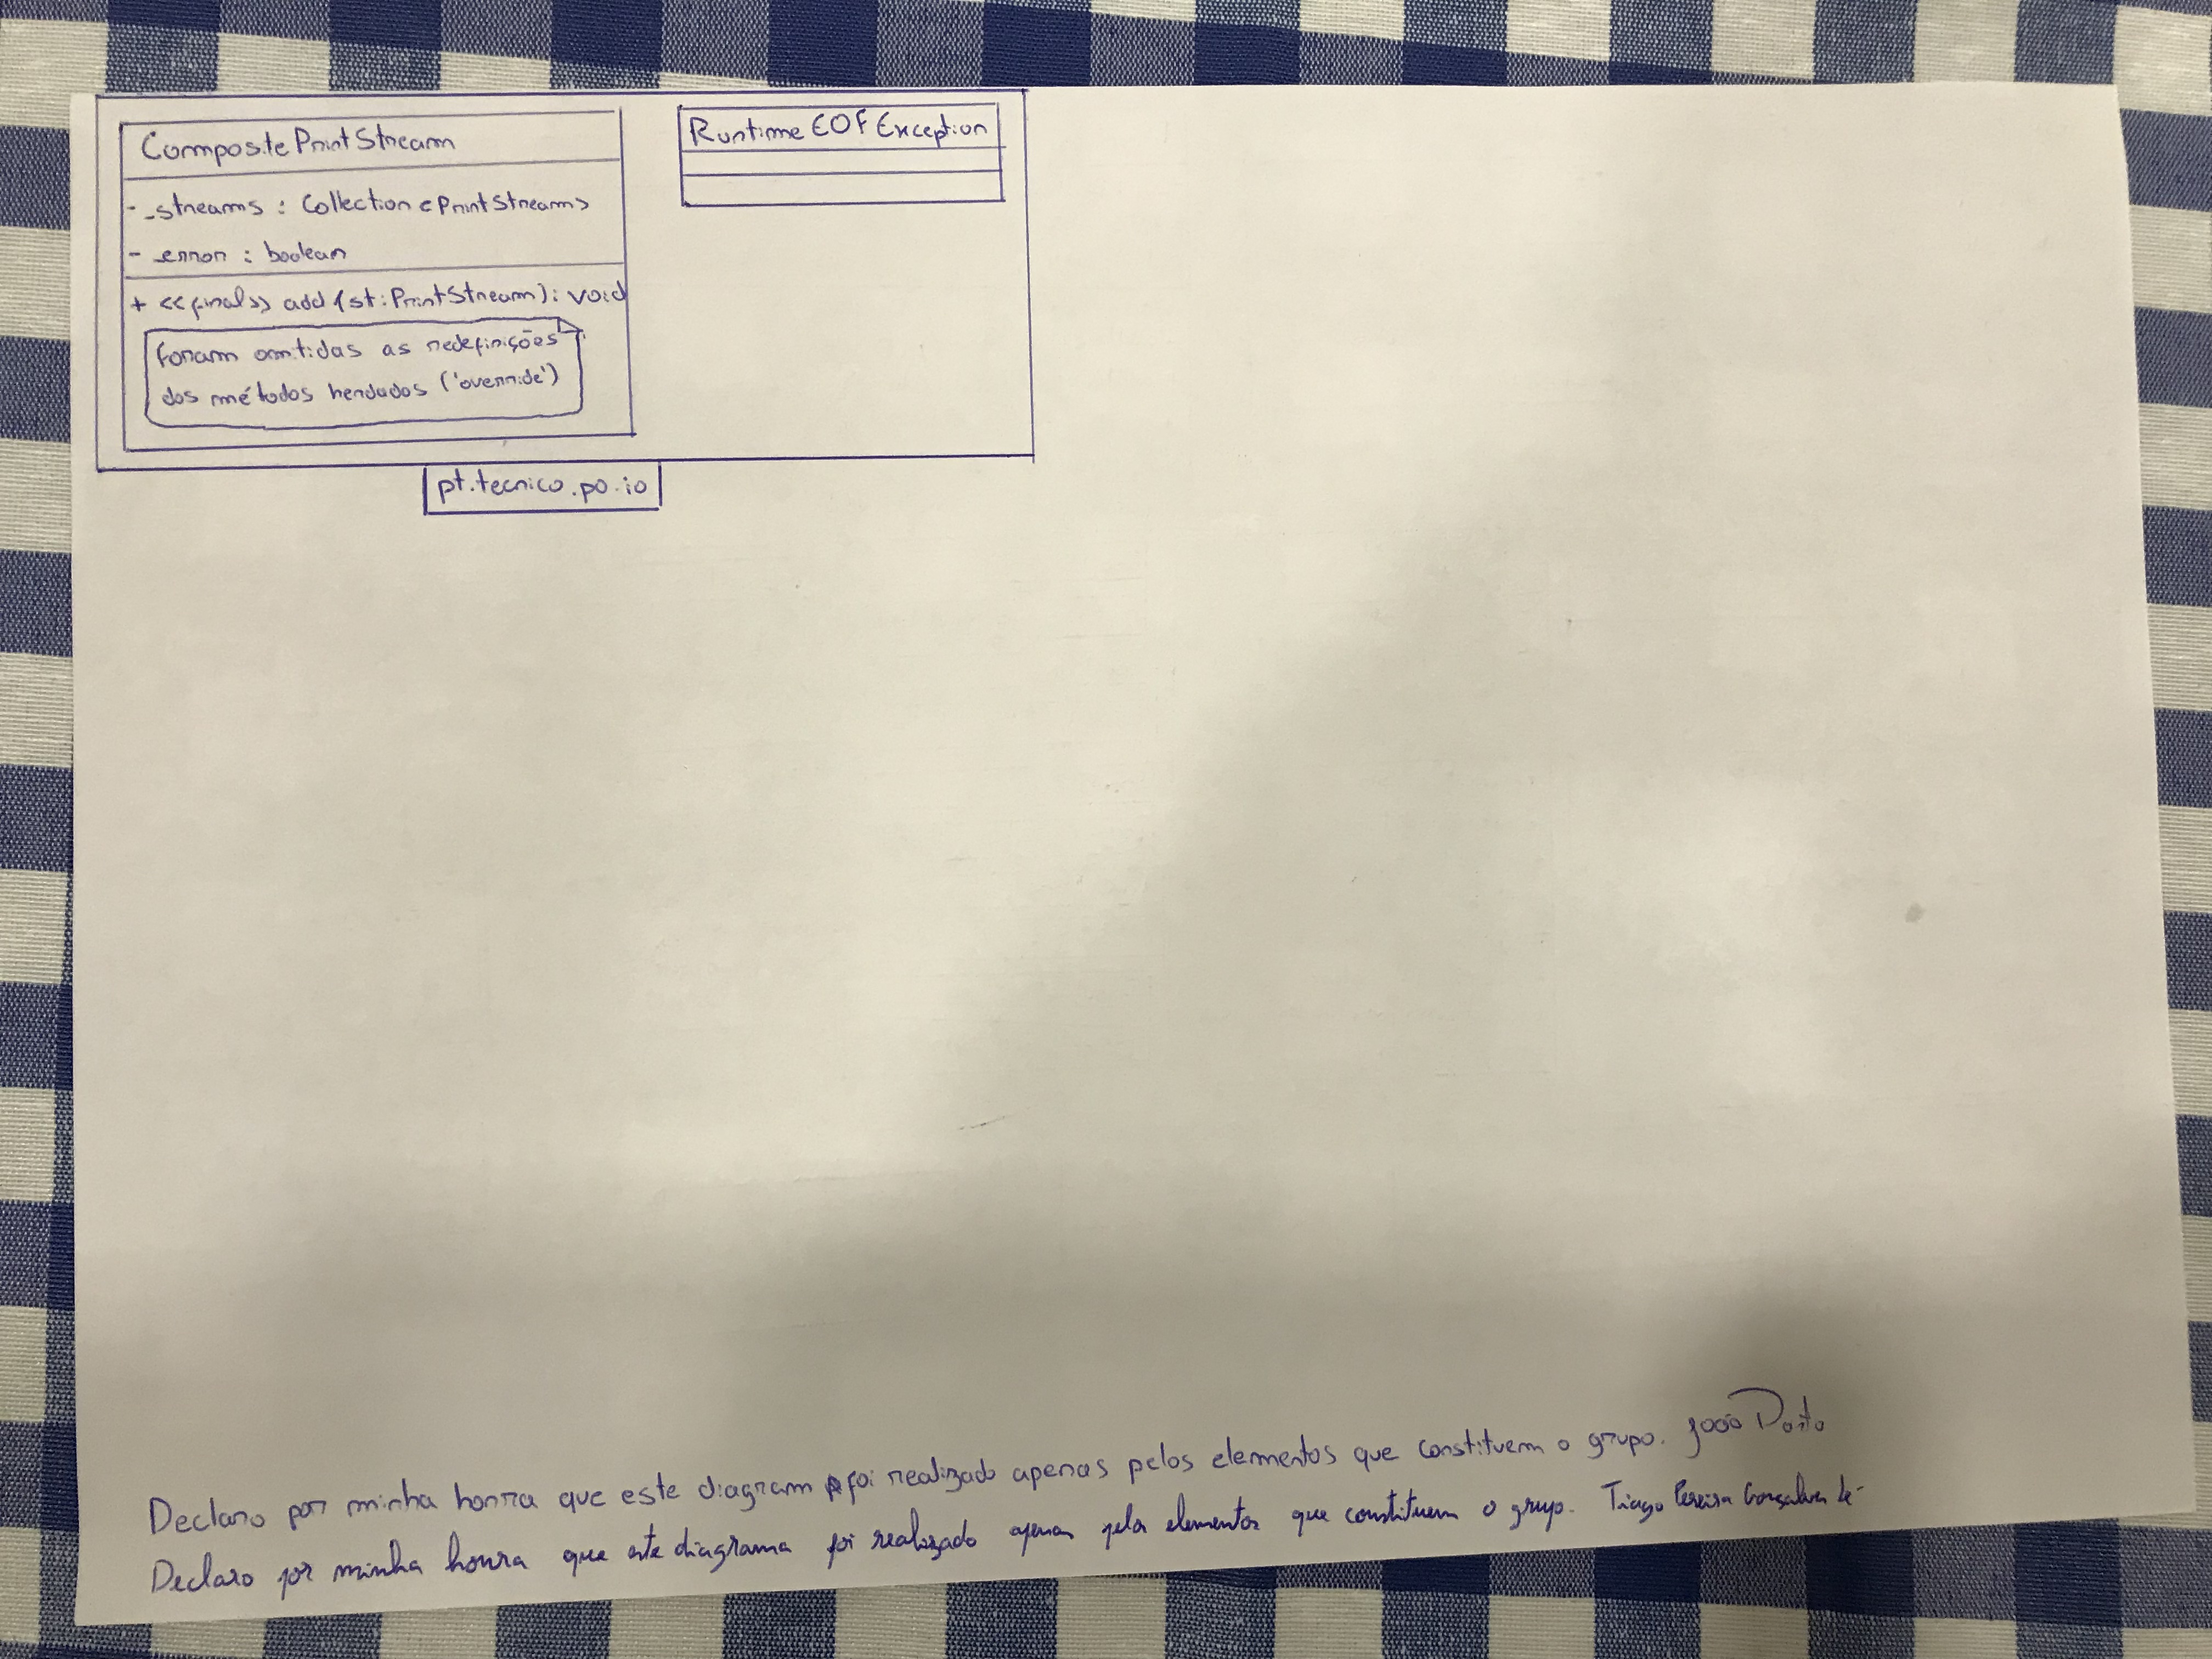 CompositePrintStream
- _streams : Collection <PrintStream>
- _error : boolean
+ <<final>> add (st : PrintStream) : void
foram omitidas as redefinições
dos métodos herdados ('override')
RuntimeEOFException
pt.tecnico.po.io
Declaro por minha honra que este diagram foi realizado apenas pelos elementos que constituem o grupo. João Porto
Declaro por minha honra que este diagrama foi realizado apenas pelos elementos que constituem o grupo. Tiago Pereira Gonçalves